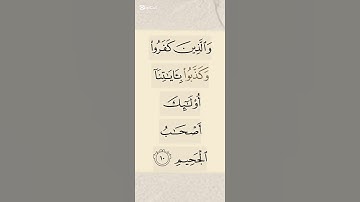 وَٱلَّذِينَ كَفَرُوا۟
وَكَذَّبُوا۟ بِـَٔايَـٰتِنَآ
أُو۟لَـٰٓئِكَ
أَصْحَـٰبُ
ٱلْجَحِيمِ ١٠